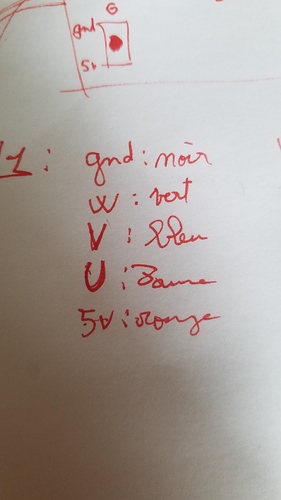 G
gnd
5v
1 : gnd : noir
W : vert
V : bleu
U : Jaune
5V : rouge